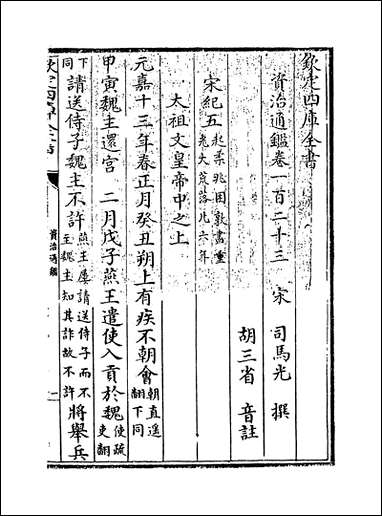 欽定四庫全書
資治通鑑卷一百二十三
宋 司馬光 撰
胡三省 音註
宋紀五起柔兆困敦盡重光大荒落凡六年
太祖文皇帝中之上
元嘉十三年春正月癸丑朔上有疾不朝會朝直遥翻下同
甲寅魏主還宮 二月戊子燕王遣使入貢於魏使疏吏翻
下同請送侍子魏主不許燕王屢請送侍子而不至魏主知其詐故不許將舉兵
欽定四庫全書
資治通鑑
一